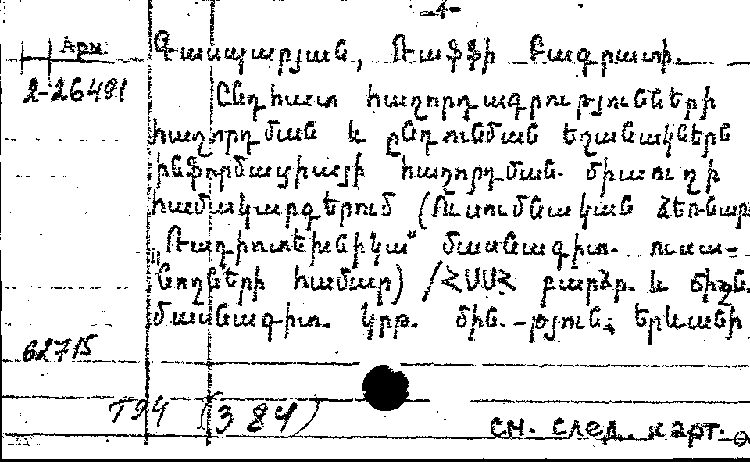 -4-
Арм.
Գասպարյան, Ռաֆֆի Բագրատի.
2-26491
Ընդհատ հաղորդագրությունների
հաղորդման և ընդունման եղանակներն
ինֆորմացիայի հաղորդման միաուղի
համակարգերում (Ուսումնական ձեռնար
„Ռադիոտեխնիկա“ մասնագիտ. ուսա-
նողների համար) /ՀՍՍՀ բարձր. և միջն.
մասնագիտ. կրթ. մին.-թյուն; Երևանի
62715
T94 (384)
см. след. карт.